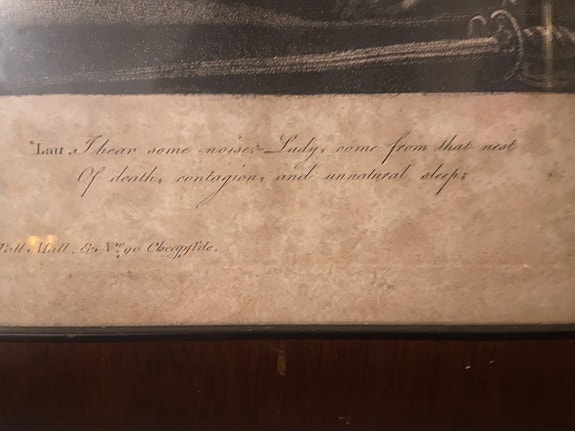 Lau. I hear some noise. Lady, come from that nest
Of death, contagion, and unnatural sleep;
Pall Mall, & No. 90 Cheapside.